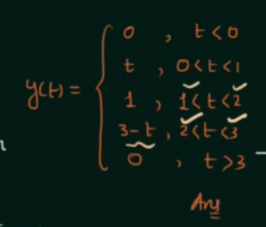 y(t) = { 0 , t < 0
t , 0 < t < 1
1 , 1 < t < 2
3 - t , 2 < t < 3
0 , t > 3
Ans